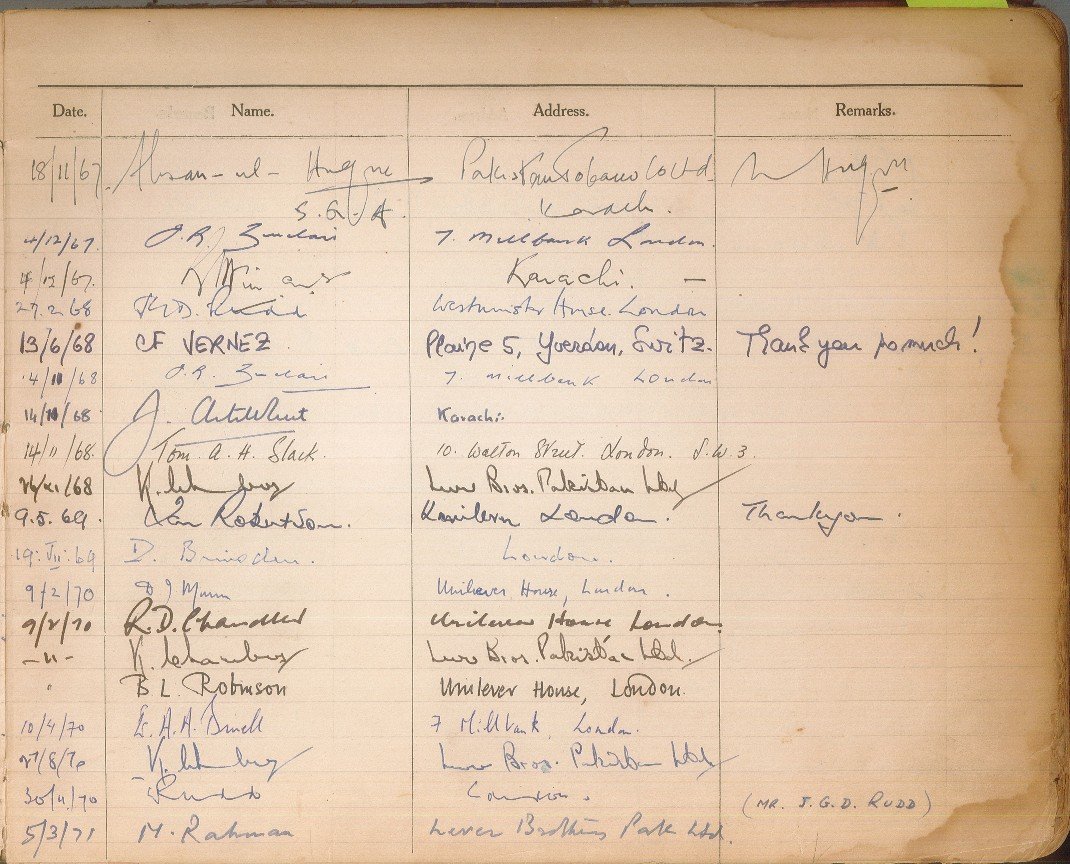 Date. Name. Address. Remarks.
18/11/67 Ahsan-ul-Huque Pakistan Tobacco Co Ltd. Huque
S.G.A. Karachi.
4/12/67. J.R. Sinclair 7. Millbank London.
4/12/67. Karachi. —
27.2.68 Rudd Westminster House. London
13/6/68 CF VERNEZ Plaine 5, Yverdon, Switz. Thank you so much!
14/11/68 J.R. Sinclair 7. Millbank London
14/11/68 J. Karachi.
14/11/68. Tom. A. H. Slack. 10. Walton Street. London. S.W.3.
/68 K. Lever Bros. Pakistan Ltd
9.5.69. Ian Robertson. Unilever London. Thankyou.
19.VII.69 D. London.
9/2/70 D J Mann Unilever House, London.
9/2/70 R.D. Chandler Unilever House London.
-"- K. Lever Bros. Pakistan Ltd.
" B L Robinson Unilever House, London.
10/4/70 A.A. 7 Millbank, London.
27/8/70 K. Lever Bros. Pakistan Ltd
30/11/70 Rudd London. (MR. J.G.D. RUDD)
5/3/71 M. Rahman Lever Brothers Pak Ltd.